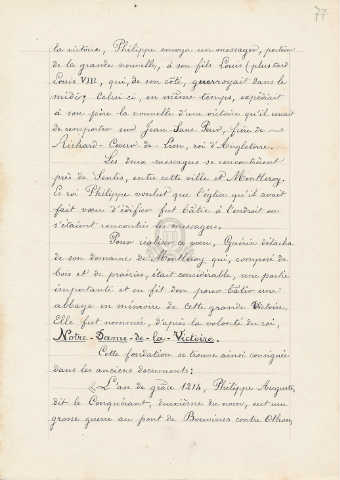 77
la victoire, Philippe envoya un messager, porteur
de la grande nouvelle, à son fils Louis (plus tard
Louis VIII, qui, de son côté, guerroyait dans le
midi; Celui ci, en même temps, expédiait
à son père la nouvelle d'une victoire qu'il venait
de remporter sur Jean-Sans-Peur, frère de
Richard-Cœur de Lion, roi d'Angleterre.
Les deux messagers se rencontrèrent
près de Senlis, entre cette ville et Montlevoy.
Le roi Philippe voulut que l'église qu'il avait
fait vœu d'édifier fut bâtie à l'endroit où
s'étaient rencontrés les messagers.
Pour réaliser ce vœu, Guérin détacha
de son domaine de Montlevoy qui, composé de
bois et de prairies, était considérable, une partie
importante et en fit don pour bâtir une
abbaye en mémoire de cette grande Victoire.
Elle fut nommée, d'après la volonté du roi,
Notre-Dame-de-la-Victoire.
Cette fondation se trouve ainsi consignée
dans les anciens documents:
«L'an de grâce 1214, Philippe Auguste,
dit le Conquérant, deuxième du nom, eut une
grosse guerre au pont de Bouvines contre Othon,